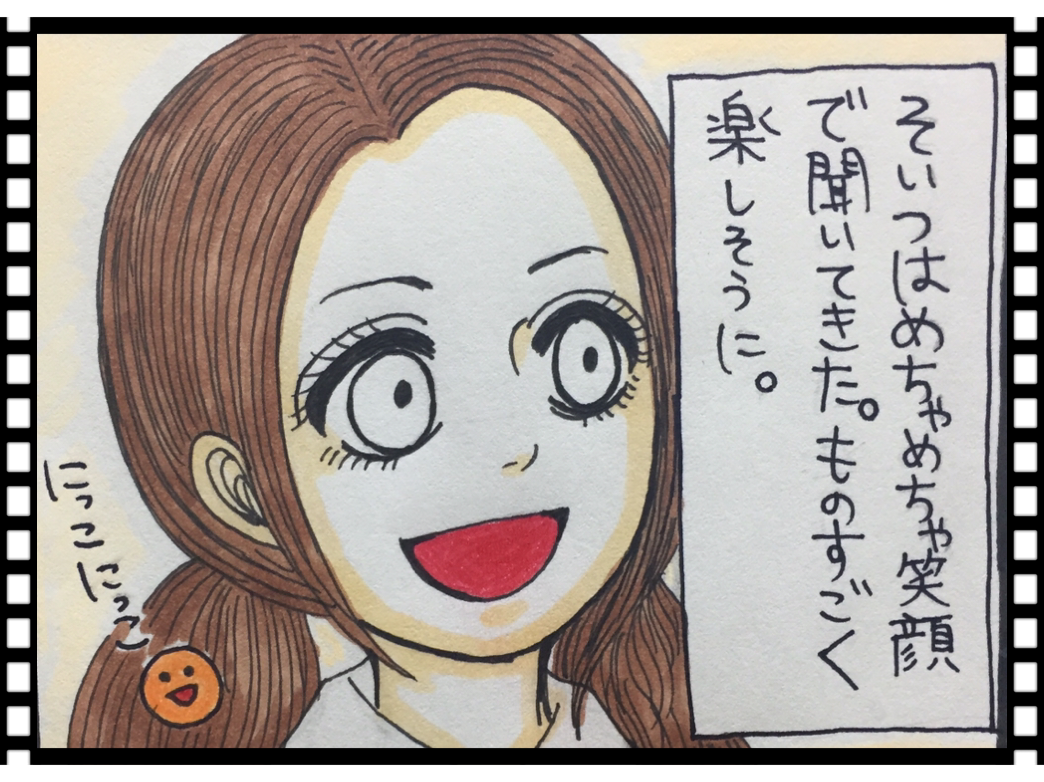 そいつはめちゃめちゃ笑顔
で聞いてきた。ものすごく
楽しそうに。
にっこにっこ